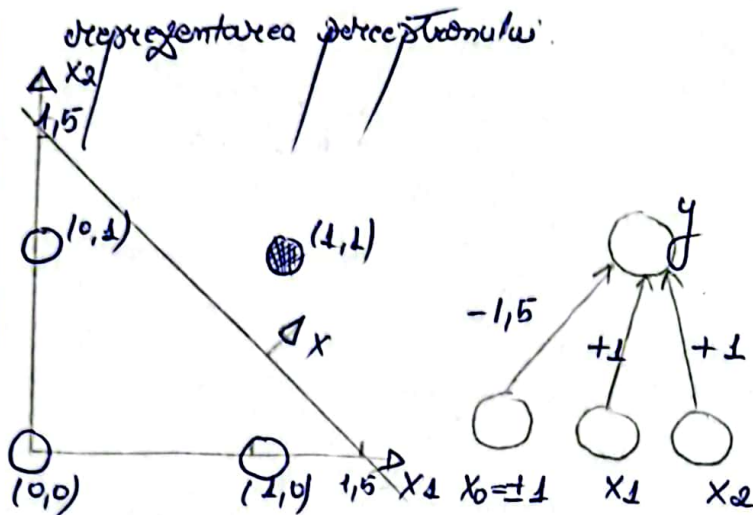 reprezentarea perceptronului
X2
1,5
(0,1)
(1,1)
y
-1,5
X
+1
+1
(0,0)
(1,0)
1,5
X1
X0=±1
X1
X2